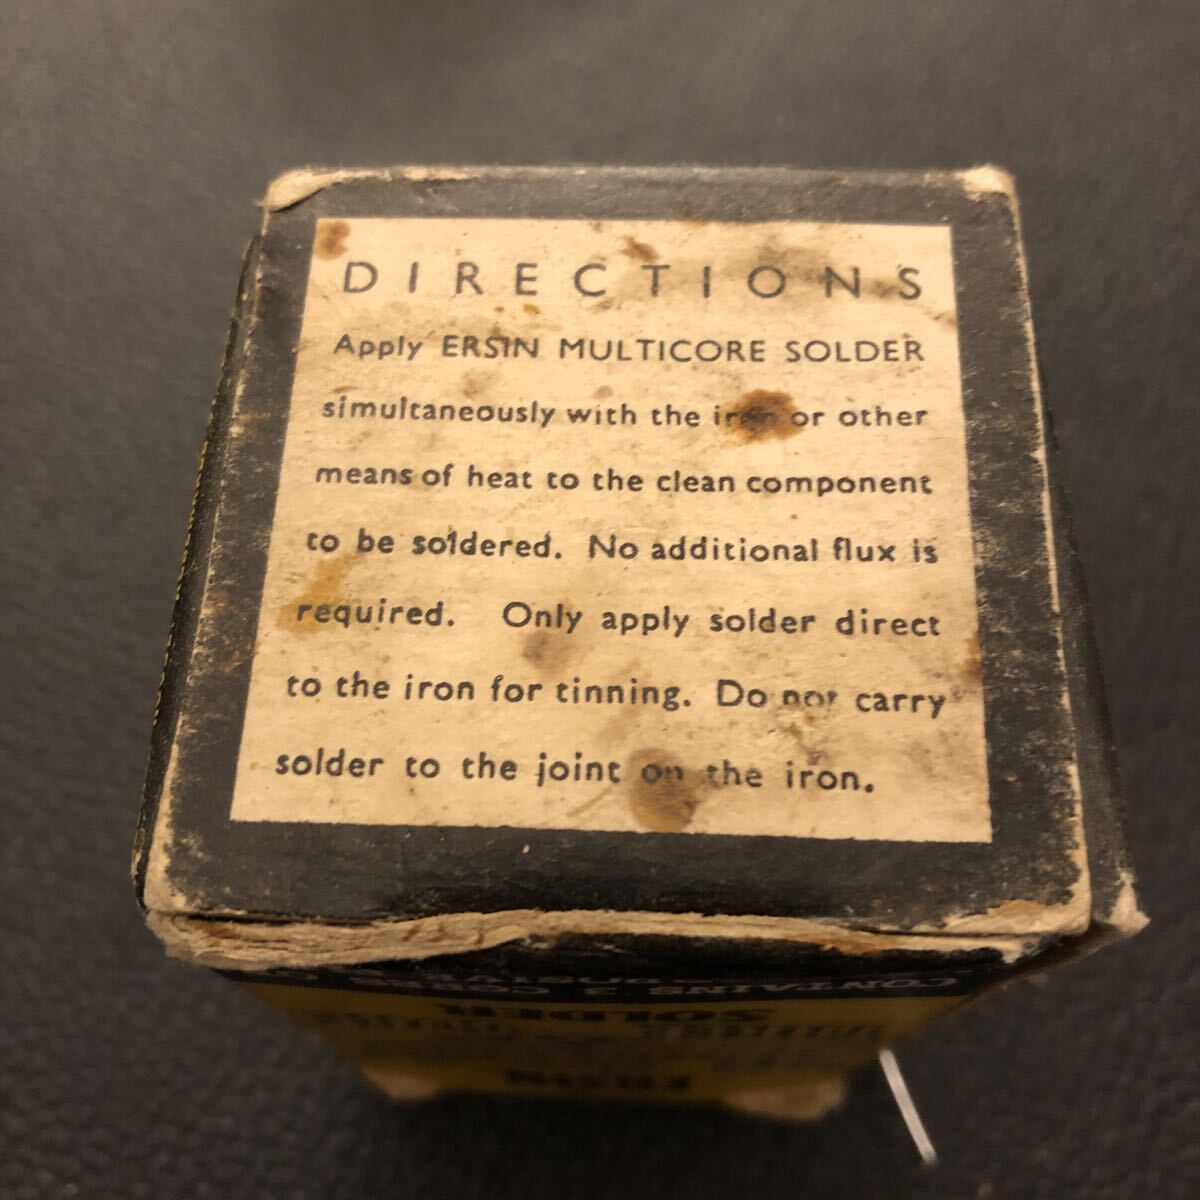 DIRECTIONS
Apply ERSIN MULTICORE SOLDER
simultaneously with the iron or other
means of heat to the clean component
to be soldered. No additional flux is
required. Only apply solder direct
to the iron for tinning. Do not carry
solder to the joint on the iron.
CONTAINS 3 CORES
SOLDER
ERSIN